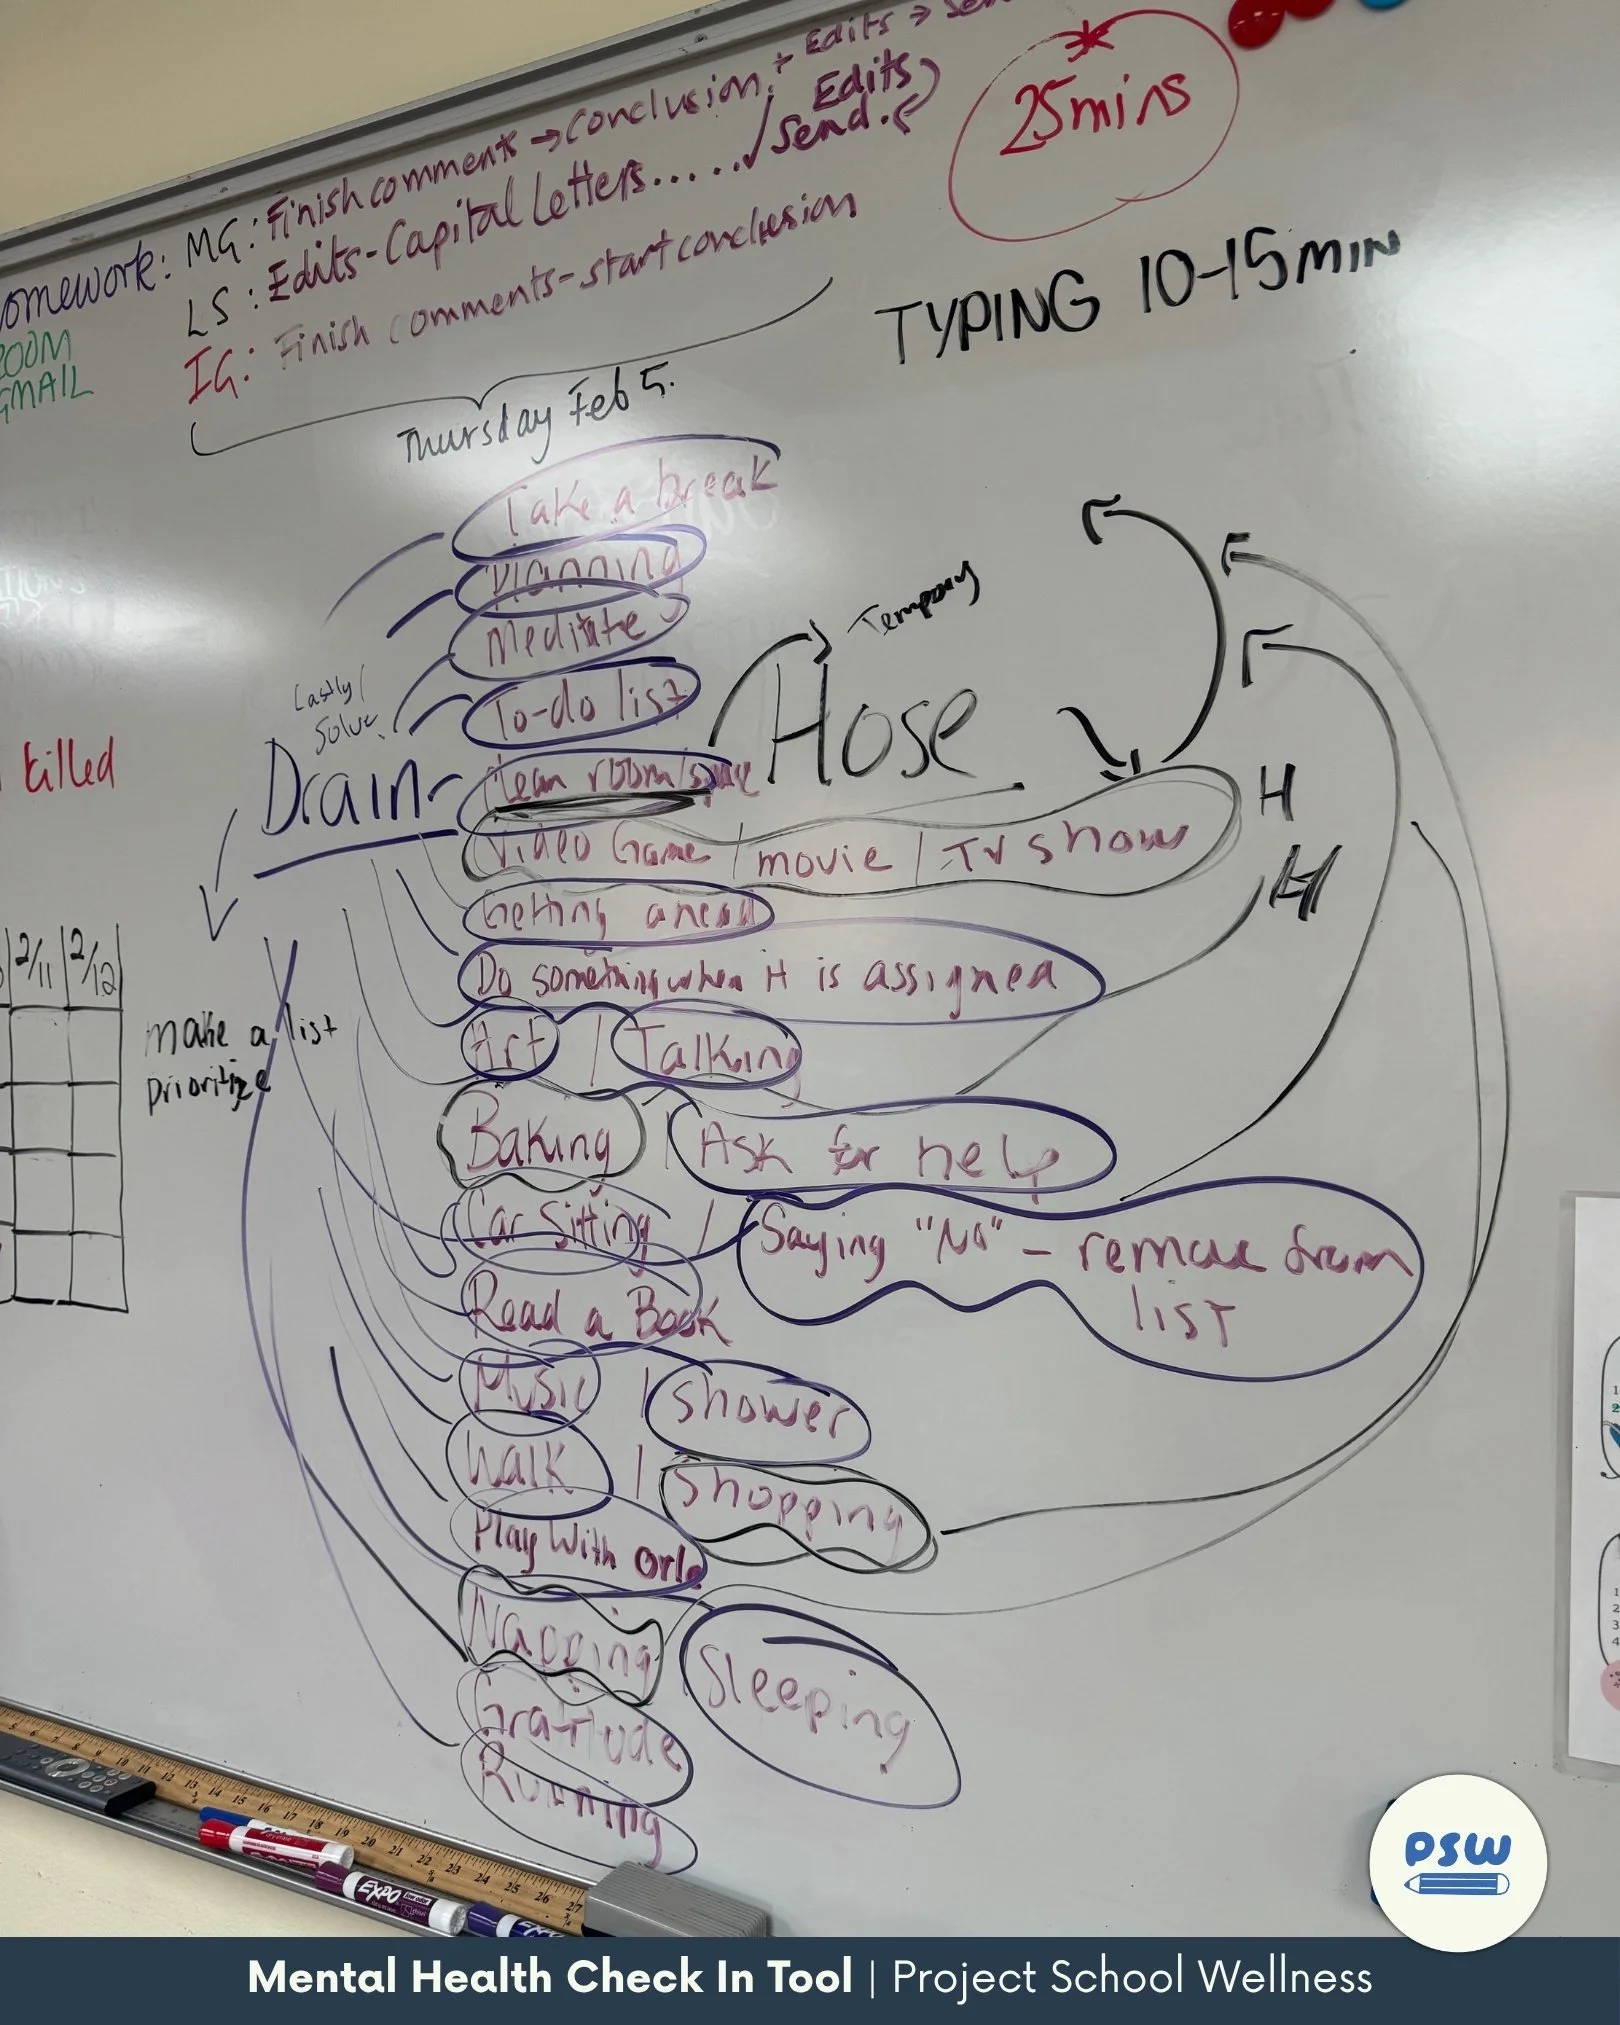 MG: Finish comments → conclusion + Edits →
LS: Edits-Capital Letters..... ✓ Send. Edits
IG: Finish comments-start conclusion
GMAIL
25mins
TYPING 10-15 MIN
Thursday Feb 5.
Take a break
Planning
Meditate
Lastly/
Solve
To-do list
Hose
killed
Drain
clean room/space
Video Game / movie / TV show
H
H
Getting ahead
2/11 2/12
Do something when it is assigned
make a list
prioritize
Art / Talking
Baking / Ask for help
Car Sitting / Saying "No" - remove from
list
Read a Book
Music / Shower
Walk / Shopping
Play With
Napping / Sleeping
Gratitude
Running
EXPO
PSW
Mental Health Check In Tool | Project School Wellness